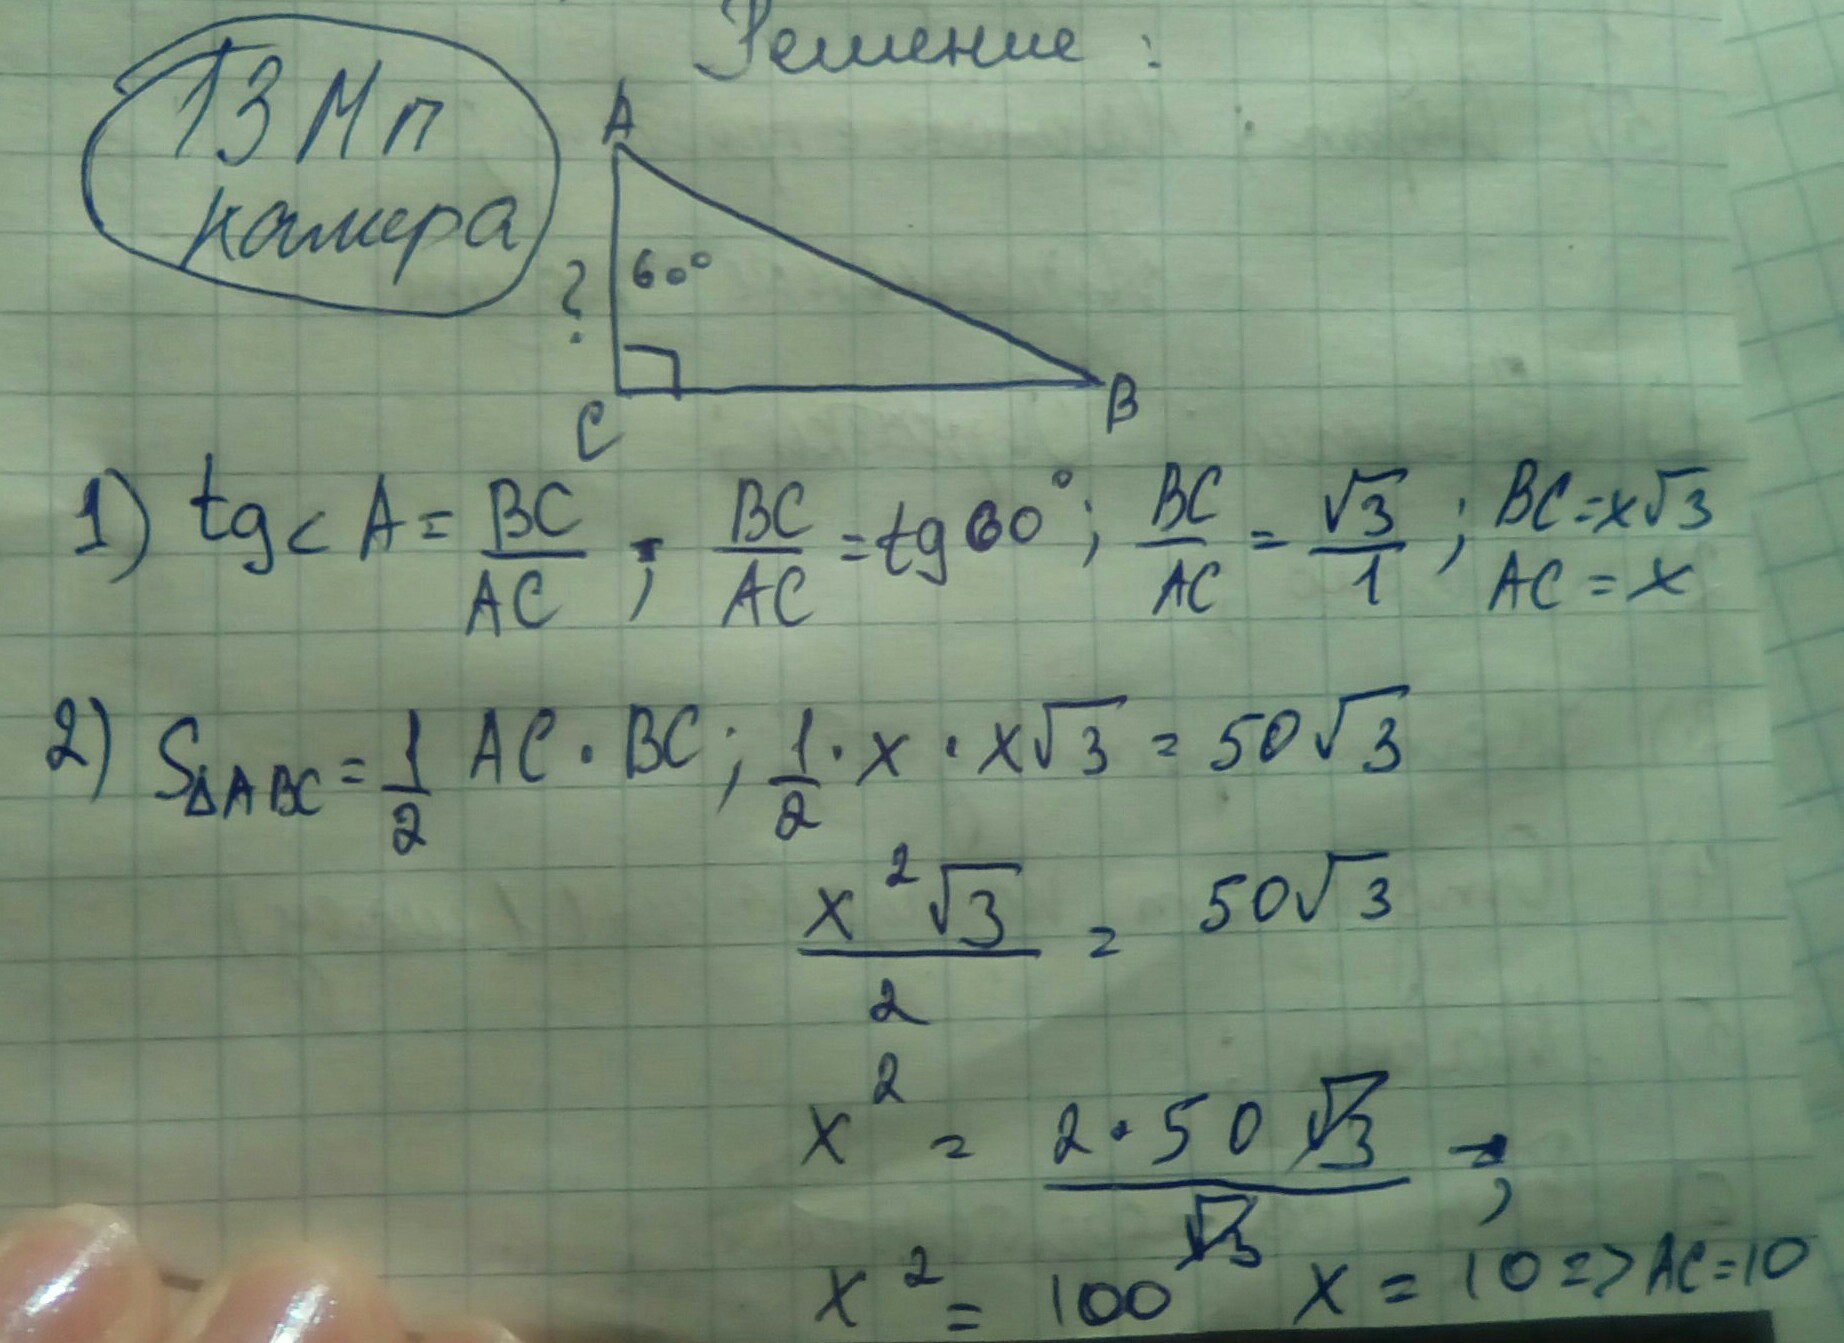 Решение :
13 Мп
камера
A
60°
?
C
B
1) tg < A = BC/AC ; BC/AC = tg 60° ; BC/AC = √3/1 ; BC = x√3
AC = x
2) S△ABC = 1/2 AC · BC ; 1/2 · x · x√3 = 50√3
x²√3/2 = 50√3
x² = 2·50√3/√3 ;
x² = 100 x = 10 => AC = 10